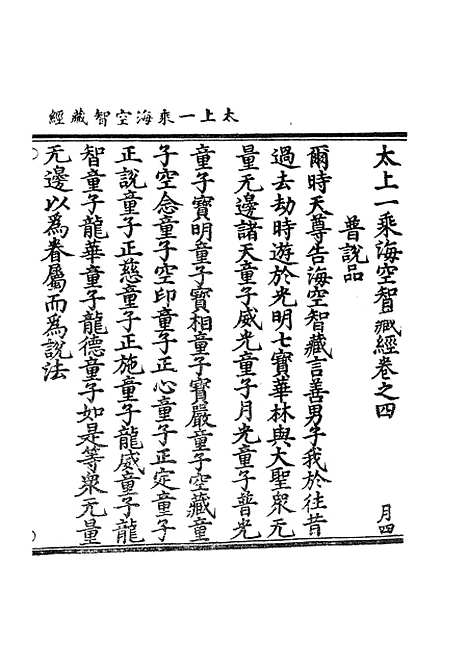 太上一乘海空智藏經
太上一乘海空智藏經卷之四 月四
普說品
爾時天尊告海空智藏言善男子我於往昔
過去劫時遊於光明七寶華林與大聖衆无
量无邊諸天童子威光童子月光童子普光
童子寶明童子寶相童子寶嚴童子空藏童
子空念童子空印童子正心童子正定童子
正說童子正慈童子正施童子龍威童子龍
智童子龍華童子龍德童子如是等衆无量
无邊以為眷屬而為說法